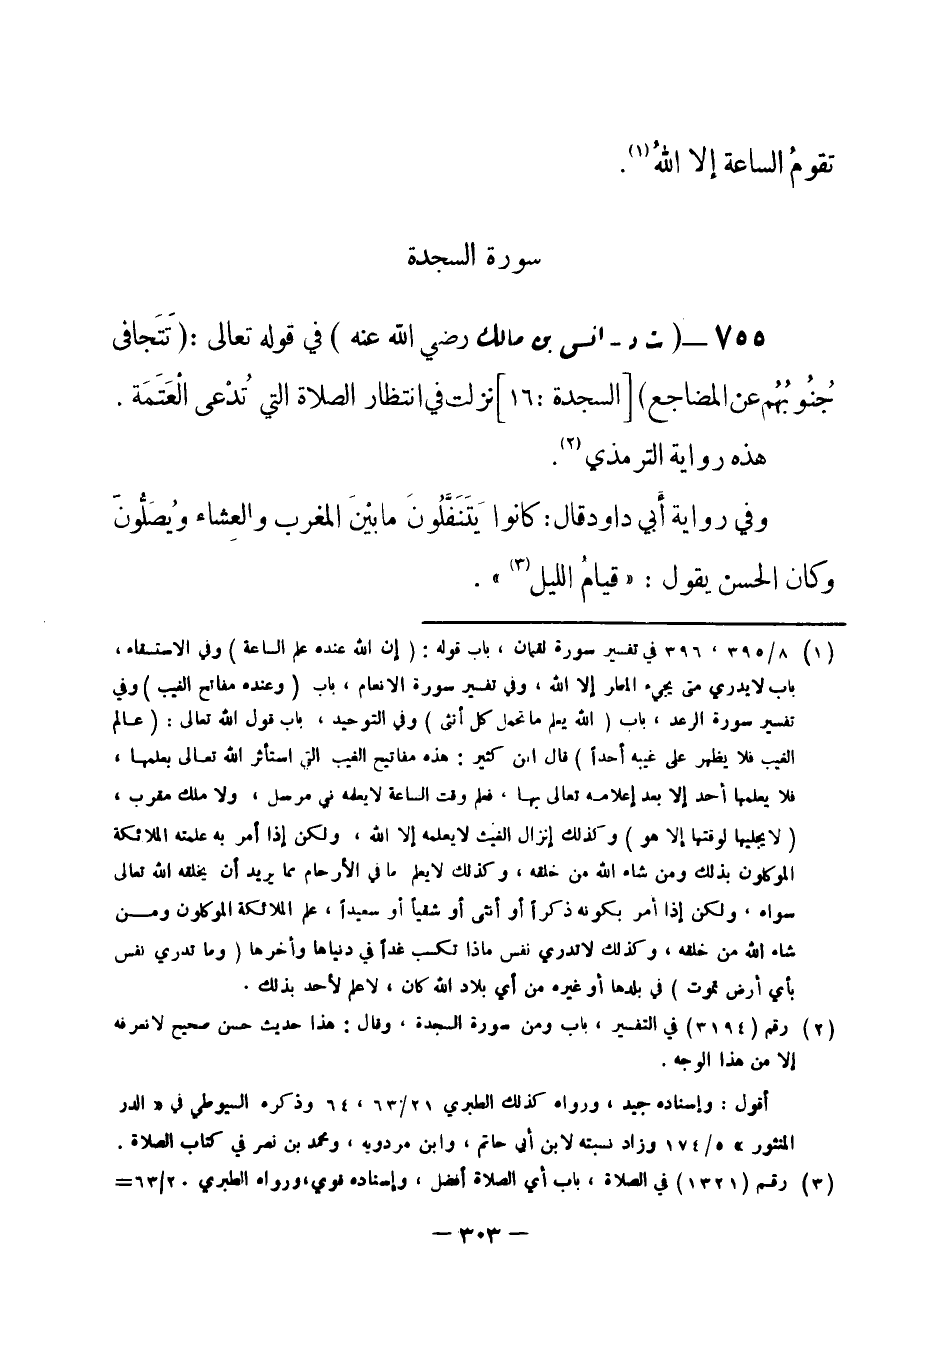 تقومُ الساعة إلا اللهُ (١).
سورة السجدة
٧٥٥ – ( ت د - أنس بن مالك رضي الله عنه ) في قوله تعالى : ( تَتَجافى
جُنُوبُهُم عن المضاجع ) [ السجدة : ١٦ ] نزلت في انتظار الصلاة التي تُدْعى الْعَتَمَة .
هذه رواية الترمذي (٢).
وفي رواية أبي داود قال : كانوا يَتَنَفَّلُونَ ما بيْنَ المغرب والعِشاء ويُصَلُّونَ
وكان الحسن يقول : « قيامُ الليل (٣) » .
(١) ٨/ ٣٩٥ ، ٣٩٦ في تفسير سورة لقمان ، باب قوله : ( إن الله عنده علم الساعة ) وفي الاستسقاء ،
باب لا يدري متى يجيء المطر إلا الله ، وفي تفسير سورة الانعام ، باب ( وعنده مفاتح الغيب ) وفي
تفسير سورة الرعد ، باب ( الله يعلم ما تحمل كل أنثى ) وفي التوحيد ، باب قول الله تعالى : ( عالم
الغيب فلا يظهر على غيبه أحداً ) قال ابن كثير : هذه مفاتيح الغيب التي استأثر الله تعالى بعلمها ،
فلا يعلمها أحد إلا بعد إعلامه تعالى بها ، فعلم وقت الساعة لا يعلمه نبي مرسل ، ولا ملك مقرب ،
( لا يجليها لوقتها إلا هو ) وكذلك إنزال الغيث لا يعلمه إلا الله ، ولكن إذا أمر به علمته الملائكة
الموكلون بذلك ومن شاء الله من خلقه ، وكذلك لا يعلم ما في الأرحام مما يريد أن يخلقه الله تعالى
سواه ، ولكن إذا أمر بكونه ذكراً أو أنثى أو شقياً أو سعيداً ، علم الملائكة الموكلون ومن
شاء الله من خلقه ، وكذلك لا تدري نفس ماذا تكسب غداً في دنياها وأخرها ( وما تدري نفس
بأي أرض تموت ) في بلدها أو غيره من أي بلاد الله كان ، لا علم لأحد بذلك .
(٢) رقم ( ٣١٩٤ ) في التفسير ، باب ومن سورة السجدة ، وقال : هذا حديث حسن صحيح لا نعرفه
إلا من هذا الوجه .
أقول : وإسناده جيد ، ورواه كذلك الطبري ٢١/ ٦٣ ، ٦٤ وذكره السيوطي في « الدر
المنثور » ٥/ ١٧٤ وزاد نسبته لابن أبي حاتم ، وابن مردويه ، ومحمد بن نصر في كتاب الصلاة .
(٣) رقم ( ١٣٢١ ) في الصلاة ، باب أي الصلاة أفضل ، وإسناده قوي ، ورواه الطبري ٢٠/ ٦٣ =
– ٣٠٣ –